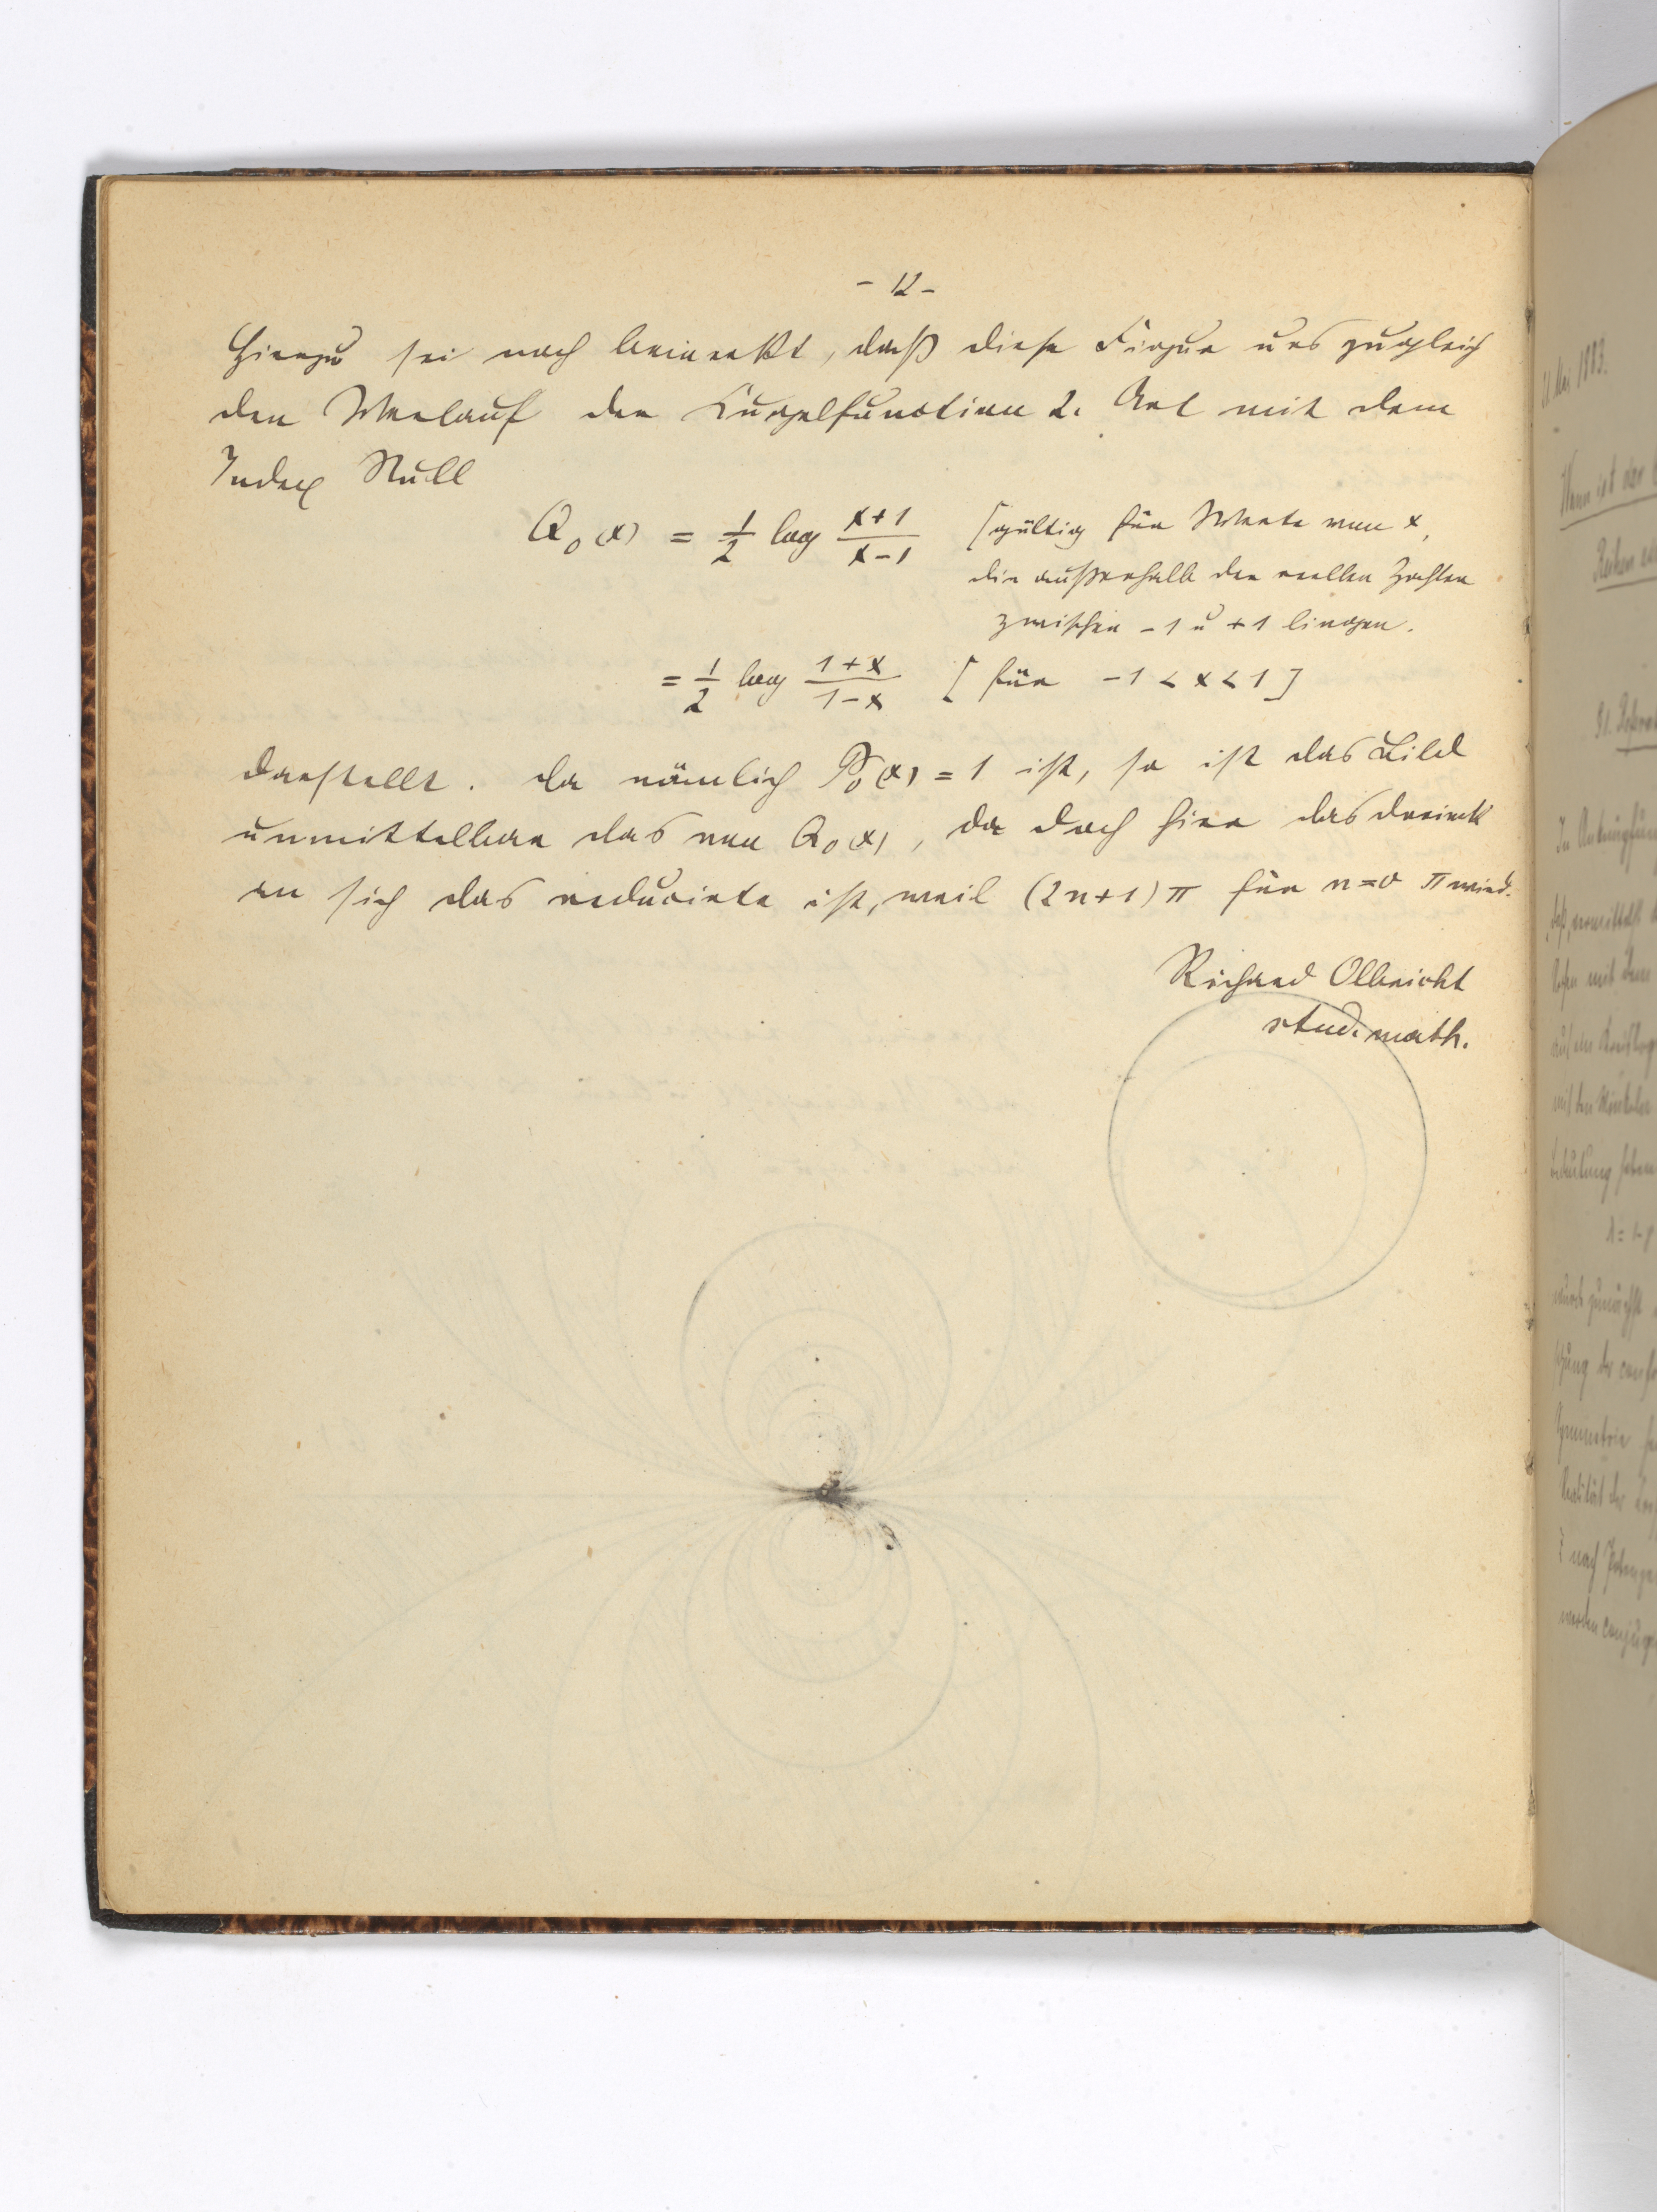 - 12 -
Hierzu sei noch bemerkt, daß diese Figur uns zugleich
den Verlauf der Kugelfunction 2. Art mit dem
Index Null
Q₀(x) = 1/2 log (x+1)/(x-1) [gültig für Werte von x,
die außerhalb der reellen Zahlen
zwischen -1 u +1 liegen.
= 1/2 log (1+x)/(1-x) [für -1 < x < 1]
darstellt. Da nämlich P₀(x) = 1 ist, so ist das Bild
unmittelbar das von Q₀(x), da doch hier das Dreieck
an sich das reducirte ist, weil (2n+1)π für n=0 π wird.
Richard Olbricht
stud. math.
21. Mai 1883.